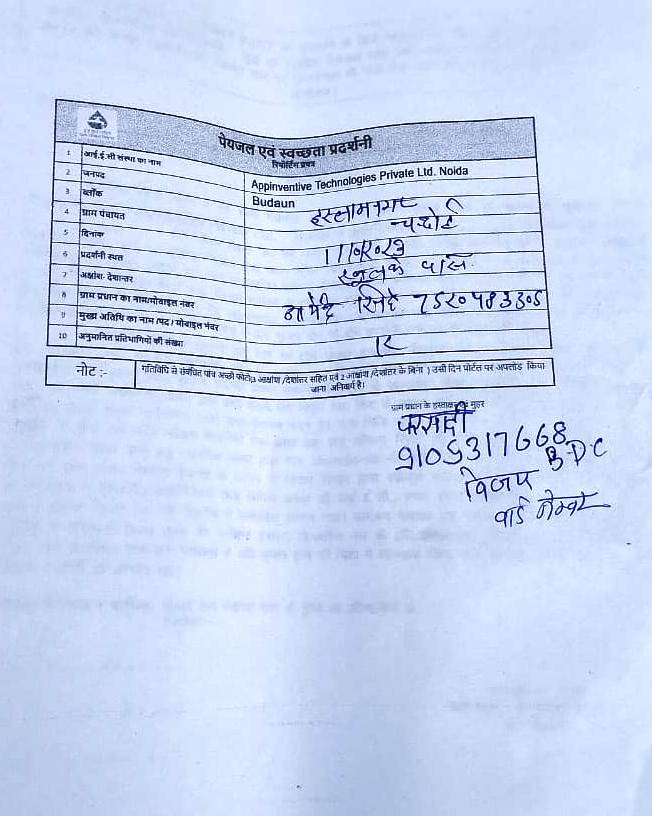 पेयजल एवं स्वच्छता प्रदर्शनी
रिपोर्टिंग प्रपत्र
1 आई.ई.सी संस्था का नाम Appinventive Technologies Private Ltd. Noida
2 जनपद Budaun
3 ब्लॉक इस्लामनगर
4 ग्राम पंचायत चन्दोई
5 दिनांक
6 प्रदर्शनी स्थल स्कूल के पास
7 अक्षांश- देशान्तर
8 ग्राम प्रधान का नाम/मोबाइल नंबर सिंह
9 मुख्य अतिथि का नाम /पद / मोबाइल नंबर
10 अनुमानित प्रतिभागियों की संख्या
नोट :- गतिविधि से संबंधित पांच अच्छी फोटो(3 अक्षांश /देशांतर सहित एवं 2 अक्षांश /देशांतर के बिना ) उसी दिन पोर्टल पर अपलोड किया
जाना अनिवार्य है।
ग्राम प्रधान के हस्ताक्षर मुहर
9105317668
B.D.C
विजय
वार्ड मेम्बर